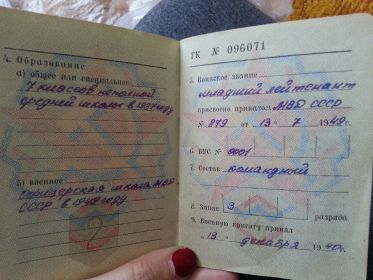 4. Образование
а) общее или специальное
7 классов неполной
средней школы в 1937 году
б) военное
школа МВД
СССР в 1949 году
2
ГК № 096071
5. Воинское звание
младший лейтенант
присвоено приказом МВД СССР
№ 879 от 13 - 7 1949г.
6. ВУС № 0001
7. Состав командный
8. Запас 3 разряда.
9. Военную присягу принял
"13" декабря 1940г.